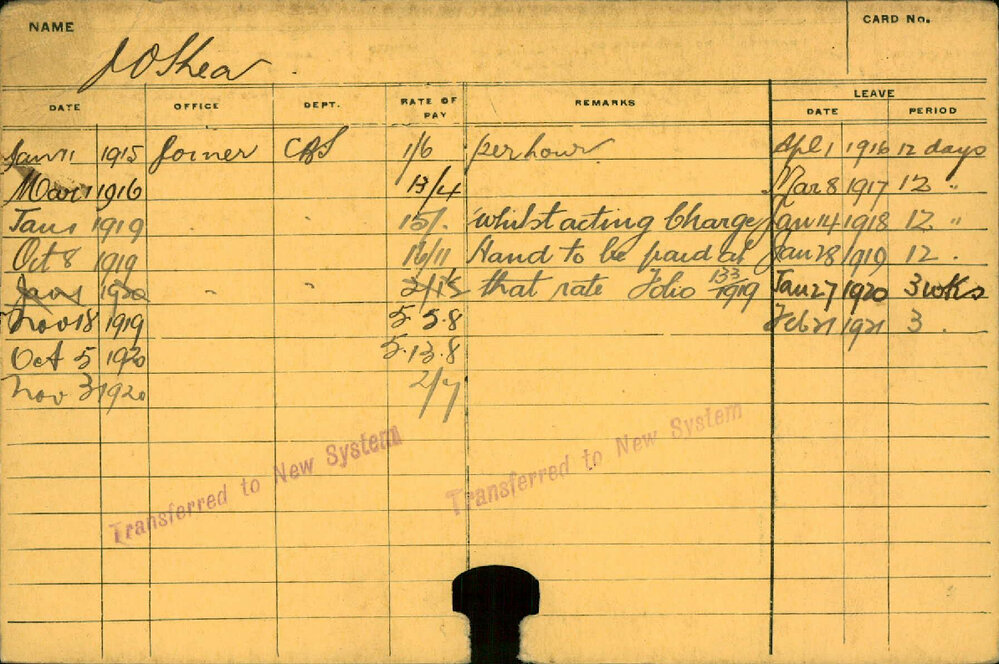 NAME
CARD No.
J O Shea
DATE OFFICE DEPT. RATE OF PAY REMARKS LEAVE
DATE PERIOD
Jany 11 1915 Joiner CAS 1/6 per hour Apl 1 1916 12 days
Mar 1 1916 13/4 Mar 8 1917 12 "
Jan 1 1919 " " 15/. Whilst acting Charge Jan 14 1918 12 "
Oct 8 1919 16/11 Hand to be paid at Jan 28 1919 12 "
Jan 1 1920 " " that rate Folio 133/1919 Jan 27 1920 3 wks
Nov 18 1919 5.5.8 Feb 21 1921 3 "
Oct 5 1920 5.13.8
Nov 3 1920 2/7
Transferred to New System
Transferred to New System